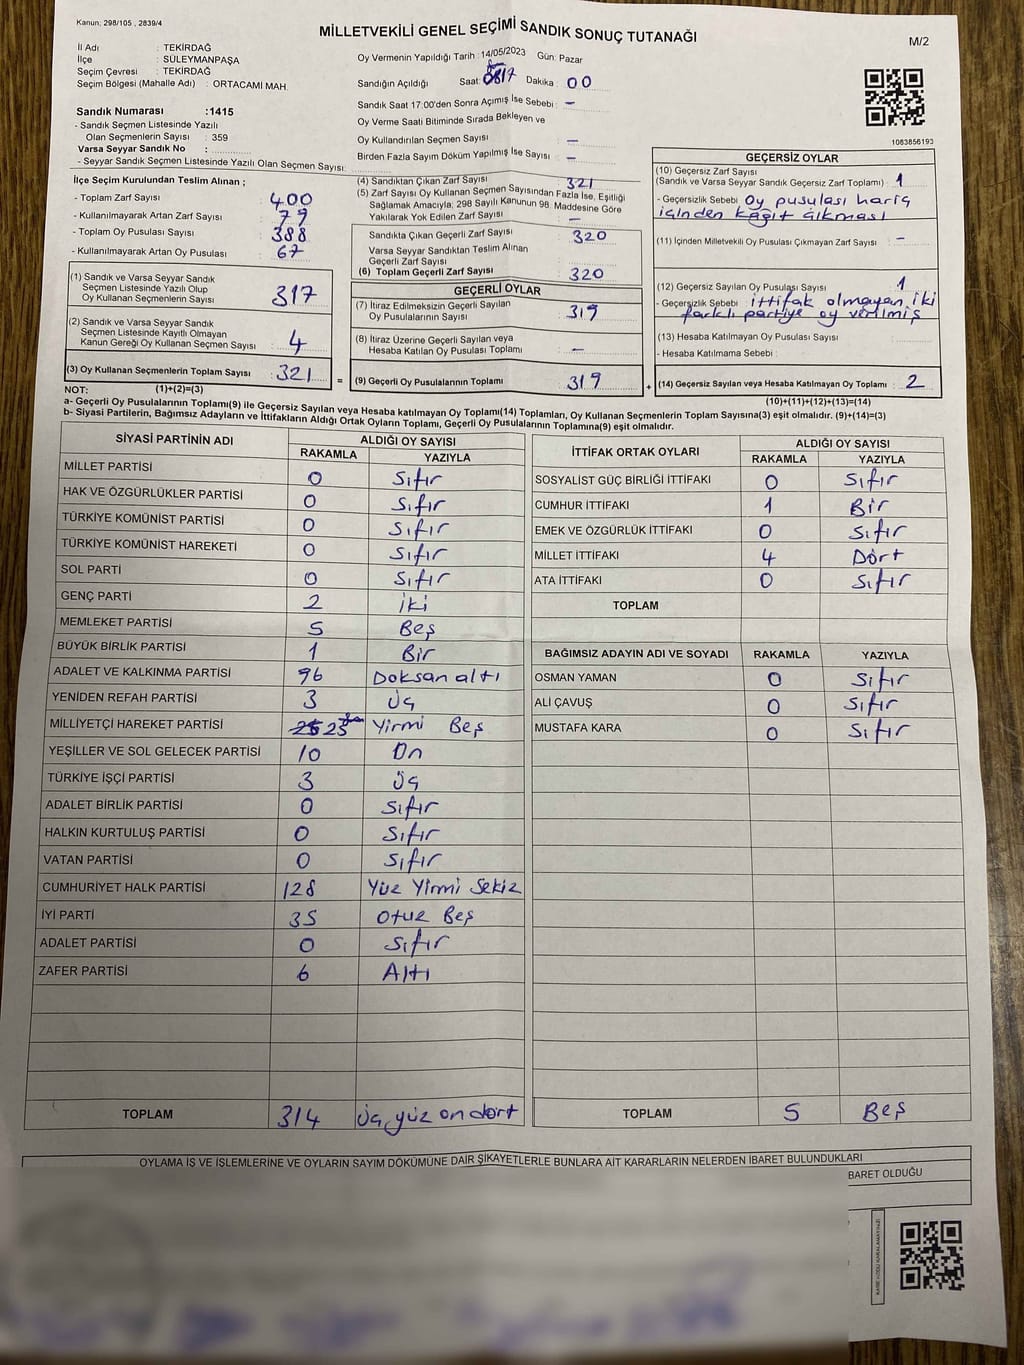 Kanun; 298/105 , 2839/4
MİLLETVEKİLİ GENEL SEÇİMİ SANDIK SONUÇ TUTANAĞI
M/2
İl Adı : TEKİRDAĞ
İlçe : SÜLEYMANPAŞA
Seçim Çevresi : TEKİRDAĞ
Seçim Bölgesi (Mahalle Adı) : ORTACAMİ MAH.
Oy Vermenin Yapıldığı Tarih : 14/05/2023 Gün: Pazar
Sandığın Açıldığı Saat: 17 Dakika : 00
Sandık Saat 17:00'den Sonra Açımış İse Sebebi : –
Oy Verme Saati Bitiminde Sırada Bekleyen ve
Oy Kullandırılan Seçmen Sayısı : –
Birden Fazla Sayım Döküm Yapılmış İse Sayısı : –
Sandık Numarası :1415
- Sandık Seçmen Listesinde Yazılı
Olan Seçmenlerin Sayısı : 359
Varsa Seyyar Sandık No :
- Seyyar Sandık Seçmen Listesinde Yazılı Olan Seçmen Sayısı:
1083856193
İlçe Seçim Kurulundan Teslim Alınan ;
- Toplam Zarf Sayısı : 400
- Kullanılmayarak Artan Zarf Sayısı : 79
- Toplam Oy Pusulası Sayısı : 388
- Kullanılmayarak Artan Oy Pusulası : 67
(1) Sandık ve Varsa Seyyar Sandık
Seçmen Listesinde Yazılı Olup
Oy Kullanan Seçmenlerin Sayısı : 317
(2) Sandık ve Varsa Seyyar Sandık
Seçmen Listesinde Kayıtlı Olmayan
Kanun Gereği Oy Kullanan Seçmen Sayısı : 4
(3) Oy Kullanan Seçmenlerin Toplam Sayısı : 321
(4) Sandıktan Çıkan Zarf Sayısı : 321
(5) Zarf Sayısı Oy Kullanan Seçmen Sayısından Fazla İse, Eşitliği
Sağlamak Amacıyla; 298 Sayılı Kanunun 98. Maddesine Göre
Yakılarak Yok Edilen Zarf Sayısı : –
Sandıkta Çıkan Geçerli Zarf Sayısı : 320
Varsa Seyyar Sandıktan Teslim Alınan
Geçerli Zarf Sayısı :
(6) Toplam Geçerli Zarf Sayısı : 320
GEÇERLİ OYLAR
(7) İtiraz Edilmeksizin Geçerli Sayılan
Oy Pusulalarının Sayısı : 319
(8) İtiraz Üzerine Geçerli Sayılan veya
Hesaba Katılan Oy Pusulası Toplamı : –
= (9) Geçerli Oy Pusulalarının Toplamı : 319
GEÇERSİZ OYLAR
(10) Geçersiz Zarf Sayısı
(Sandık ve Varsa Seyyar Sandık Geçersiz Zarf Toplamı) : 1
- Geçersizlik Sebebi : Oy pusulası hariç
içinden kağıt çıkması
(11) İçinden Milletvekili Oy Pusulası Çıkmayan Zarf Sayısı : –
(12) Geçersiz Sayılan Oy Pusulası Sayısı : 1
- Geçersizlik Sebebi : ittifak olmayan iki
farklı partiye oy verilmiş
(13) Hesaba Katılmayan Oy Pusulası Sayısı :
- Hesaba Katılmama Sebebi :
+ (14) Geçersiz Sayılan veya Hesaba Katılmayan Oy Toplamı : 2
NOT: (1)+(2)=(3)
(10)+(11)+(12)+(13)=(14)
a- Geçerli Oy Pusulalarının Toplamı(9) ile Geçersiz Sayılan veya Hesaba katılmayan Oy Toplamı(14) Toplamları, Oy Kullanan Seçmenlerin Toplam Sayısına(3) eşit olmalıdır. (9)+(14)=(3)
b- Siyasi Partilerin, Bağımsız Adayların ve İttifakların Aldığı Ortak Oyların Toplamı, Geçerli Oy Pusulalarının Toplamına(9) eşit olmalıdır.
SİYASİ PARTİNİN ADI ALDIĞI OY SAYISI
RAKAMLA YAZIYLA
MİLLET PARTİSİ 0 Sıfır
HAK VE ÖZGÜRLÜKLER PARTİSİ 0 Sıfır
TÜRKİYE KOMÜNİST PARTİSİ 0 Sıfır
TÜRKİYE KOMÜNİST HAREKETİ 0 Sıfır
SOL PARTİ 0 Sıfır
GENÇ PARTİ 2 iki
MEMLEKET PARTİSİ 5 Beş
BÜYÜK BİRLİK PARTİSİ 1 Bir
ADALET VE KALKINMA PARTİSİ 96 Doksan altı
YENİDEN REFAH PARTİSİ 3 Üç
MİLLİYETÇİ HAREKET PARTİSİ 25 Yirmi Beş
YEŞİLLER VE SOL GELECEK PARTİSİ 10 On
TÜRKİYE İŞÇİ PARTİSİ 3 Üç
ADALET BİRLİK PARTİSİ 0 Sıfır
HALKIN KURTULUŞ PARTİSİ 0 Sıfır
VATAN PARTİSİ 0 Sıfır
CUMHURİYET HALK PARTİSİ 128 Yüz Yirmi Sekiz
İYİ PARTİ 35 Otuz Beş
ADALET PARTİSİ 0 Sıfır
ZAFER PARTİSİ 6 Altı
TOPLAM 314 Üç yüz on dört
İTTİFAK ORTAK OYLARI ALDIĞI OY SAYISI
RAKAMLA YAZIYLA
SOSYALİST GÜÇ BİRLİĞİ İTTİFAKI 0 Sıfır
CUMHUR İTTİFAKI 1 Bir
EMEK VE ÖZGÜRLÜK İTTİFAKI 0 Sıfır
MİLLET İTTİFAKI 4 Dört
ATA İTTİFAKI 0 Sıfır
TOPLAM
BAĞIMSIZ ADAYIN ADI VE SOYADI RAKAMLA YAZIYLA
OSMAN YAMAN 0 Sıfır
ALİ ÇAVUŞ 0 Sıfır
MUSTAFA KARA 0 Sıfır
TOPLAM 5 Beş
OYLAMA İŞ VE İŞLEMLERİNE VE OYLARIN SAYIM DÖKÜMÜNE DAİR ŞİKAYETLERLE BUNLARA AİT KARARLARIN NELERDEN İBARET BULUNDUKLARI
BARET OLDUĞU
KARE KODU KARALAMAYINIZ!